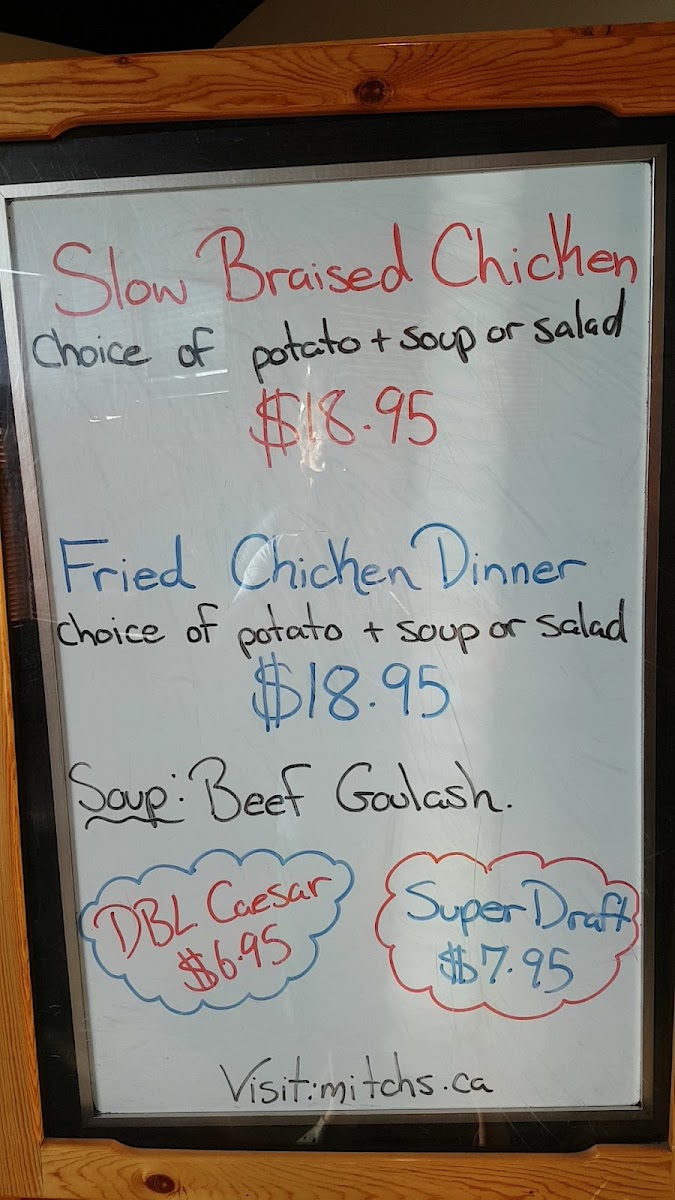 Slow Braised Chicken
Choice of potato + soup or salad
$18.95
Fried Chicken Dinner
choice of potato + soup or salad
$18.95
Soup: Beef Goulash.
DBL Caesar
$6.95
Super Draft
$7.95
Visit: mitchs.ca